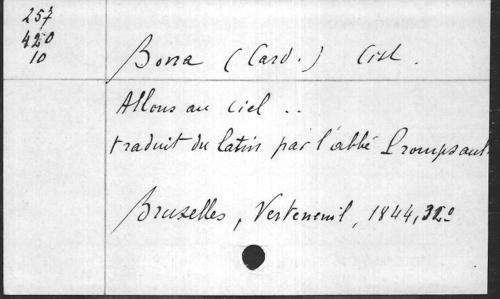 257
420
10
Bona (Card.) Cist.
Allons au ciel ..
traduit du latin par l'abbé Prompsault
Bruxelles, Verteneuil, 1844, 32o